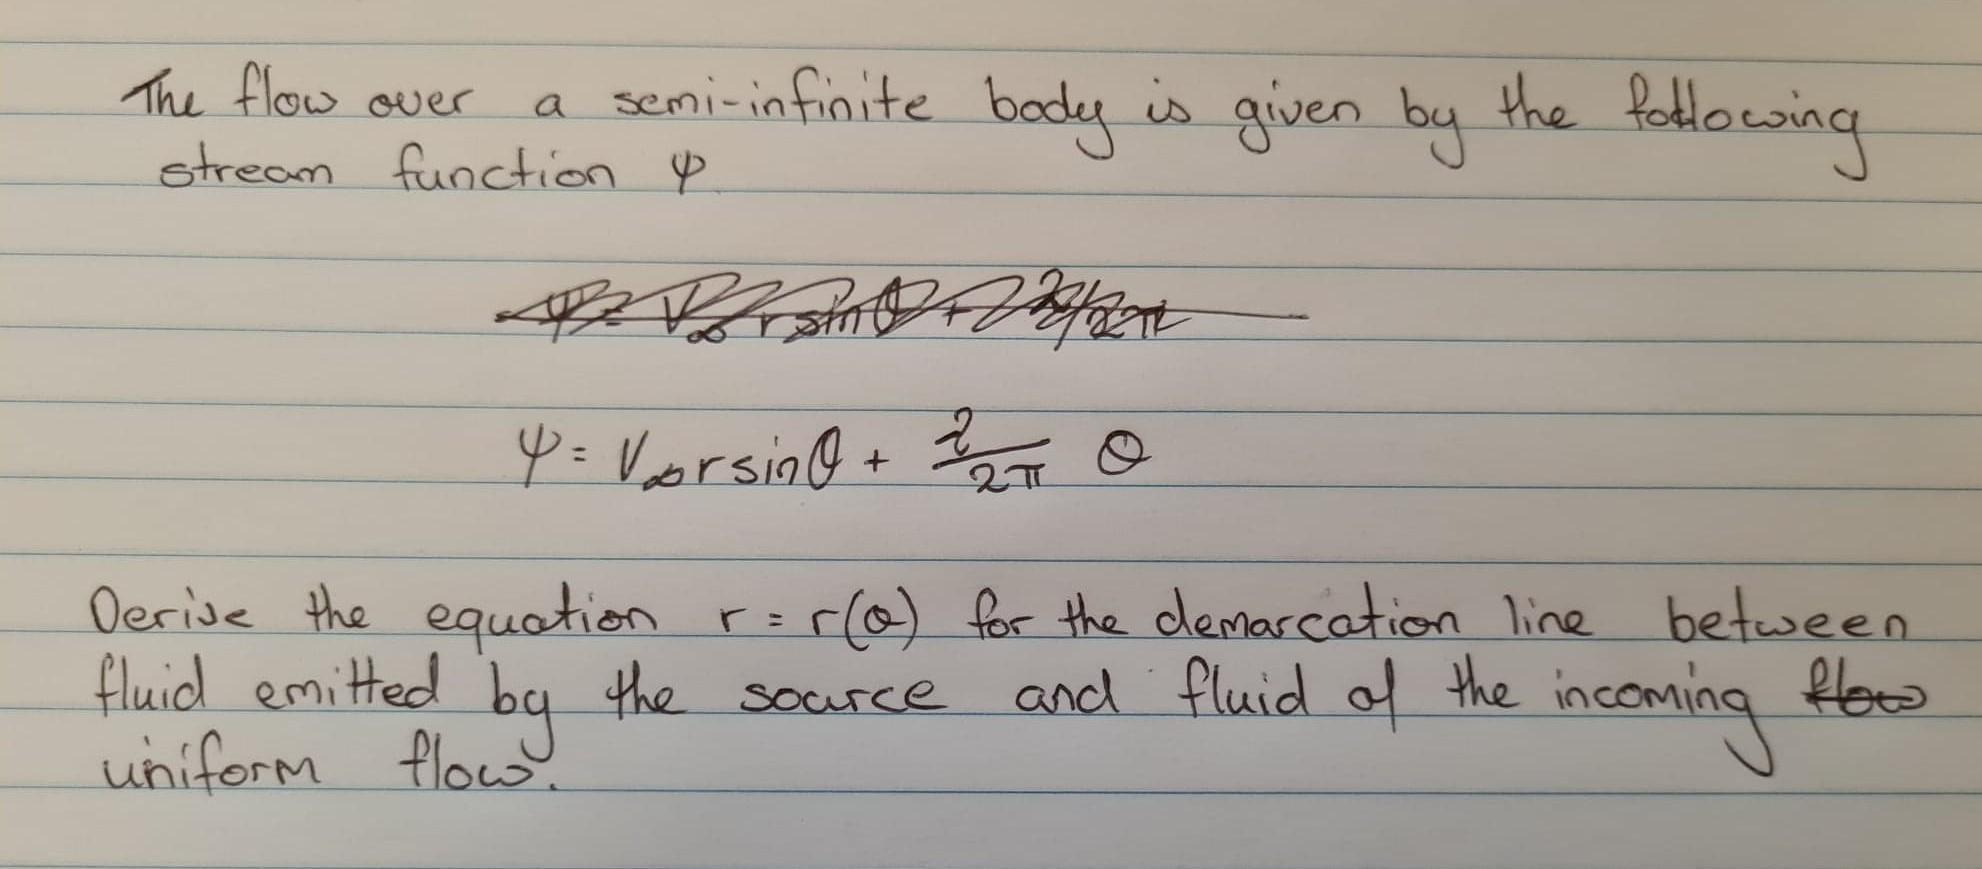 The flow over a semi-infinite body is given by the following
stream function ψ
ψ = V∞ r sinθ + λ/2π θ
Derive the equation r = r(θ) for the demarcation line between
fluid emitted by the source and fluid of the incoming flow
uniform flow.